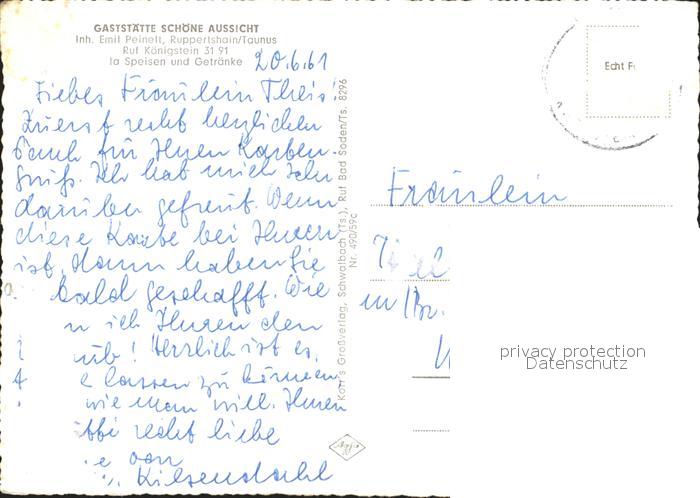 GASTSTÄTTE SCHÖNE AUSSICHT
Inh. Emil Peinelt, Ruppertshain/Taunus
Ruf Königstein 31 91
Ia Speisen und Getränke
20.6.61
Liebes Fräulein Theis!
Zuerst recht herzlichen
Dank für Ihren Karten-
gruß. Ich hab mich sehr
darüber gefreut. Wenn
diese Karte bei Ihnen
ist, dann haben Sie
bald geschafft. Wie
n ich Ihnen den
ub! Herrlich ist es,
e lassen zu können
wie man will. Ihnen
recht liebe
e von
Korr's Großverlag, Schwalbach (Ts.), Ruf Bad Soden/Ts. 8296
Nr. 490/59c
Agfa
Echt F
Fräulein
privacy protection
Datenschutz